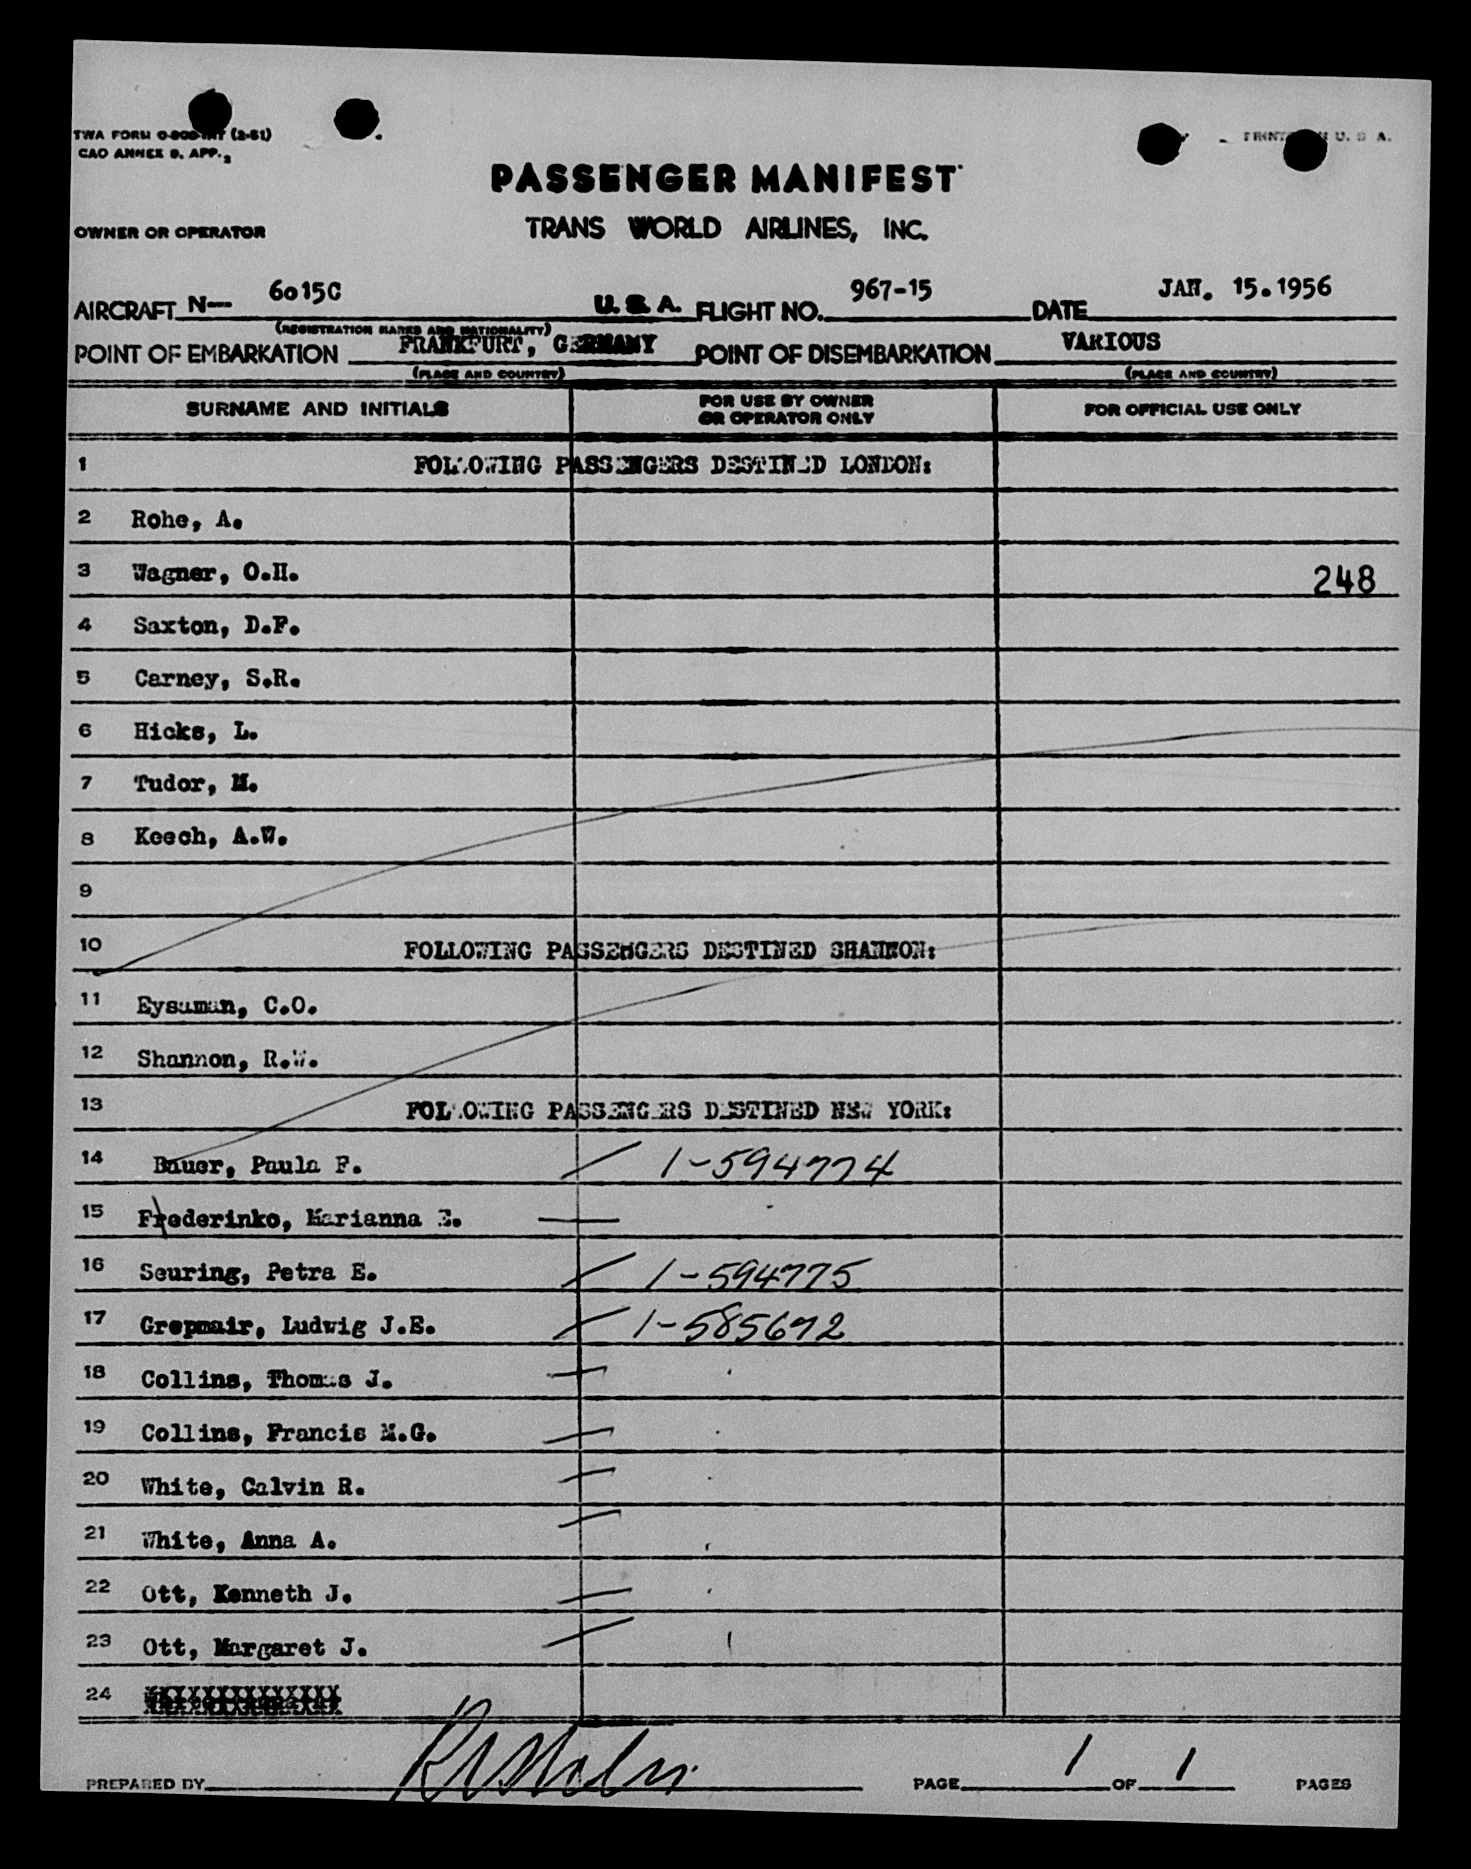 TWA FORM (2-51)
CAO ANNEX 9, APP. 2
U. S. A.
PASSENGER MANIFEST
OWNER OR OPERATOR TRANS WORLD AIRLINES, INC.
AIRCRAFT N— 6015C U. S. A. FLIGHT NO. 967-15 DATE JAN. 15.1956
(REGISTRATION MARKS AND NATIONALITY)
POINT OF EMBARKATION FRANKFURT, GERMANY POINT OF DISEMBARKATION VARIOUS
(PLACE AND COUNTRY) (PLACE AND COUNTRY)
SURNAME AND INITIALS FOR USE BY OWNER OR OPERATOR ONLY FOR OFFICIAL USE ONLY
1 FOLLOWING PASSENGERS DESTINED LONDON:
2 Rohe, A.
3 Wagner, O.H. 248
4 Saxton, D.F.
5 Carney, S.R.
6 Hicks, L.
7 Tudor, M.
8 Keech, A.W.
9
10 FOLLOWING PASSENGERS DESTINED SHANNON:
11 Eysaman, C.O.
12 Shannon, R.W.
13 FOLLOWING PASSENGERS DESTINED NEW YORK:
14 Bauer, Paula F. 1-594774
15 Frederinko, Marianna E.
16 Seuring, Petra E. 1-594775
17 Grepmair, Ludwig J.E. 1-585672
18 Collins, Thomas J.
19 Collins, Francis M.G.
20 White, Calvin R.
21 White, Anna A.
22 Ott, Kenneth J.
23 Ott, Margaret J.
24
PREPARED BY PAGE 1 OF 1 PAGES